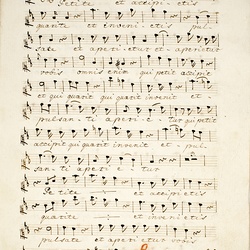 Petite et accipietis
quaerite et invenietis pul-
sate et aperietur et aperietur
vobis omnis enim qui petit accipit
et qui quaerit qui quaerit invenit et
pulsanti aperie- tur qui petit
accipit qui quaerit invenit et pul-
santi aperie- tur
Petite et accipietis
quaerite et invenietis
pulsate et aperietur vobis